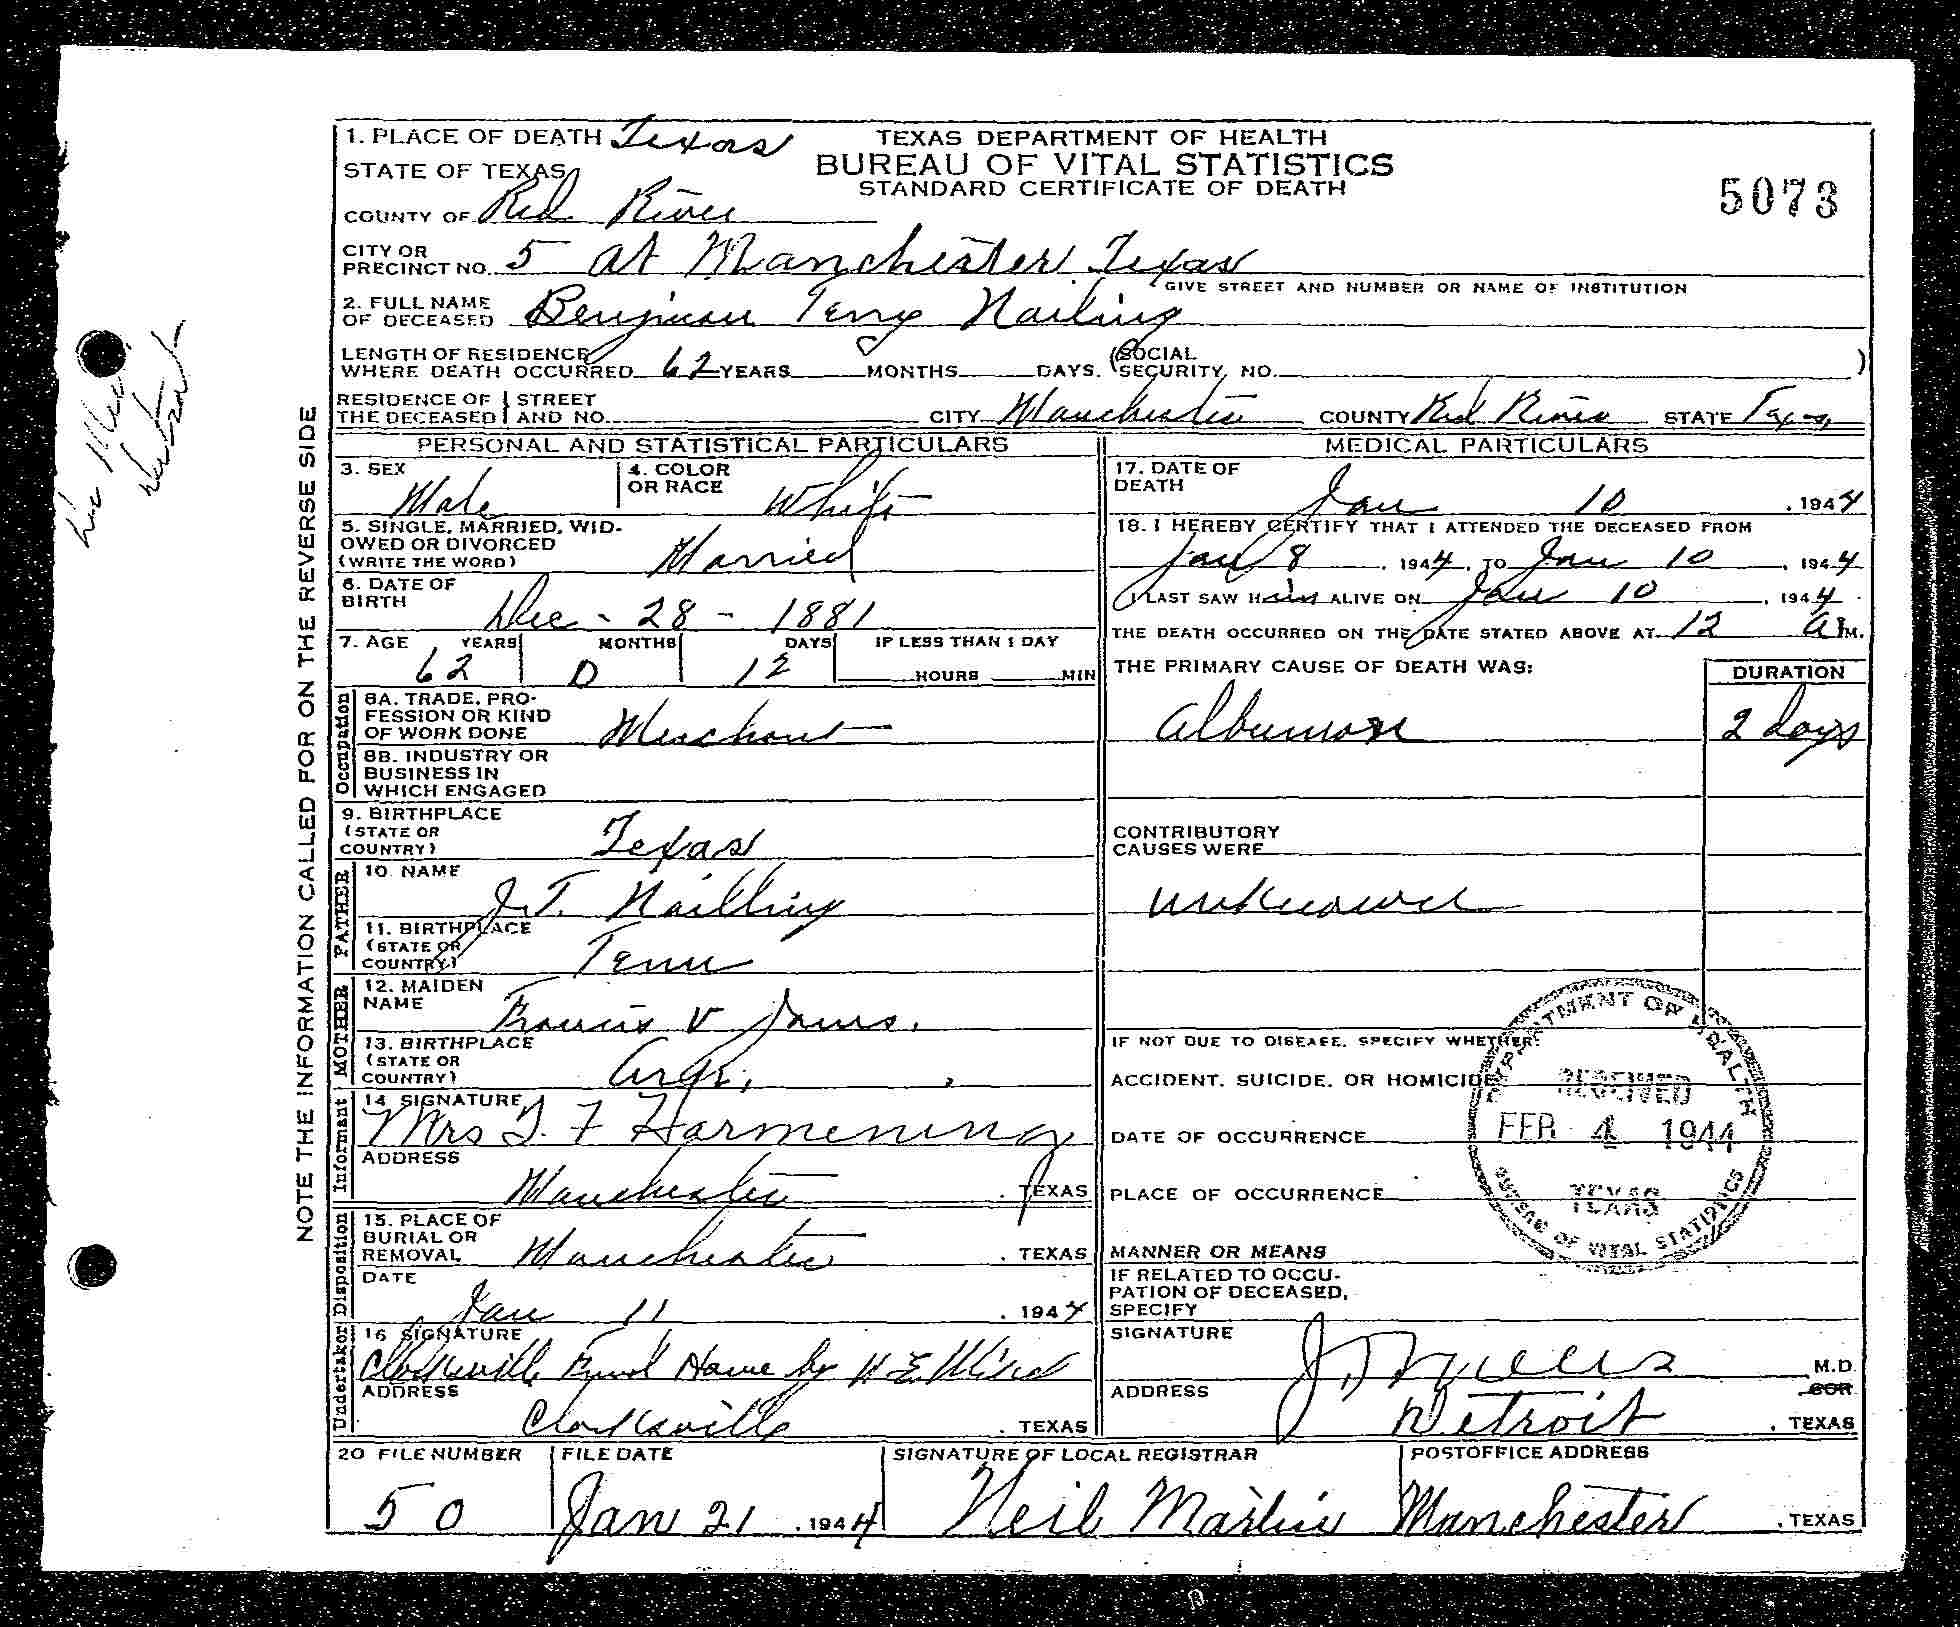 1. PLACE OF DEATH Texas
TEXAS DEPARTMENT OF HEALTH
BUREAU OF VITAL STATISTICS
STANDARD CERTIFICATE OF DEATH
5073
STATE OF TEXAS
COUNTY OF Red River
CITY OR PRECINCT NO. 5 at Manchester Texas
GIVE STREET AND NUMBER OR NAME OF INSTITUTION
2. FULL NAME OF DECEASED Benjman Terry Nailing
LENGTH OF RESIDENCE WHERE DEATH OCCURRED 62 YEARS MONTHS DAYS. (SOCIAL SECURITY NO. )
RESIDENCE OF THE DECEASED STREET AND NO. CITY Manchester COUNTY Red River STATE Texas
NOTE THE INFORMATION CALLED FOR ON THE REVERSE SIDE
PERSONAL AND STATISTICAL PARTICULARS
3. SEX Male
4. COLOR OR RACE White
5. SINGLE, MARRIED, WIDOWED OR DIVORCED (WRITE THE WORD) Married
6. DATE OF BIRTH Dec - 28 - 1881
7. AGE YEARS 62 MONTHS 0 DAYS 12 IF LESS THAN 1 DAY HOURS MIN
Occupation
8A. TRADE, PROFESSION OR KIND OF WORK DONE Merchant
8B. INDUSTRY OR BUSINESS IN WHICH ENGAGED
9. BIRTHPLACE (STATE OR COUNTRY) Texas
FATHER
10. NAME J.T. Nailling
11. BIRTHPLACE (STATE OR COUNTRY) Tenn
MOTHER
12. MAIDEN NAME Francis V
13. BIRTHPLACE (STATE OR COUNTRY) Ark,
Informant
14 SIGNATURE Mrs T. F Harmening
ADDRESS Manchester . TEXAS
Disposition
15. PLACE OF BURIAL OR REMOVAL Manchester . TEXAS
DATE Jan 11 . 1944
Undertaker
16 SIGNATURE Clarksville Funl Home by
ADDRESS Clarksville . TEXAS
MEDICAL PARTICULARS
17. DATE OF DEATH Jan 10 . 1944
18. I HEREBY CERTIFY THAT I ATTENDED THE DECEASED FROM
Jan 8 . 1944, TO Jan 10 , 1944
I LAST SAW Him ALIVE ON Jan 10 , 1944
THE DEATH OCCURRED ON THE DATE STATED ABOVE AT 12 a M.
THE PRIMARY CAUSE OF DEATH WAS: DURATION
2 days
CONTRIBUTORY CAUSES WERE
unknown
IF NOT DUE TO DISEASE, SPECIFY WHETHER:
ACCIDENT, SUICIDE, OR HOMICIDE
DATE OF OCCURRENCE
PLACE OF OCCURRENCE
MANNER OR MEANS
IF RELATED TO OCCUPATION OF DECEASED, SPECIFY
DEPARTMENT OF HEALTH
RECEIVED
FEB 4 1944
TEXAS
BUREAU OF VITAL STATISTICS
SIGNATURE M.D.
COR
ADDRESS Detroit . TEXAS
20 FILE NUMBER 50
FILE DATE Jan 21 . 1944
SIGNATURE OF LOCAL REGISTRAR Neil Martin
POSTOFFICE ADDRESS Manchester , TEXAS